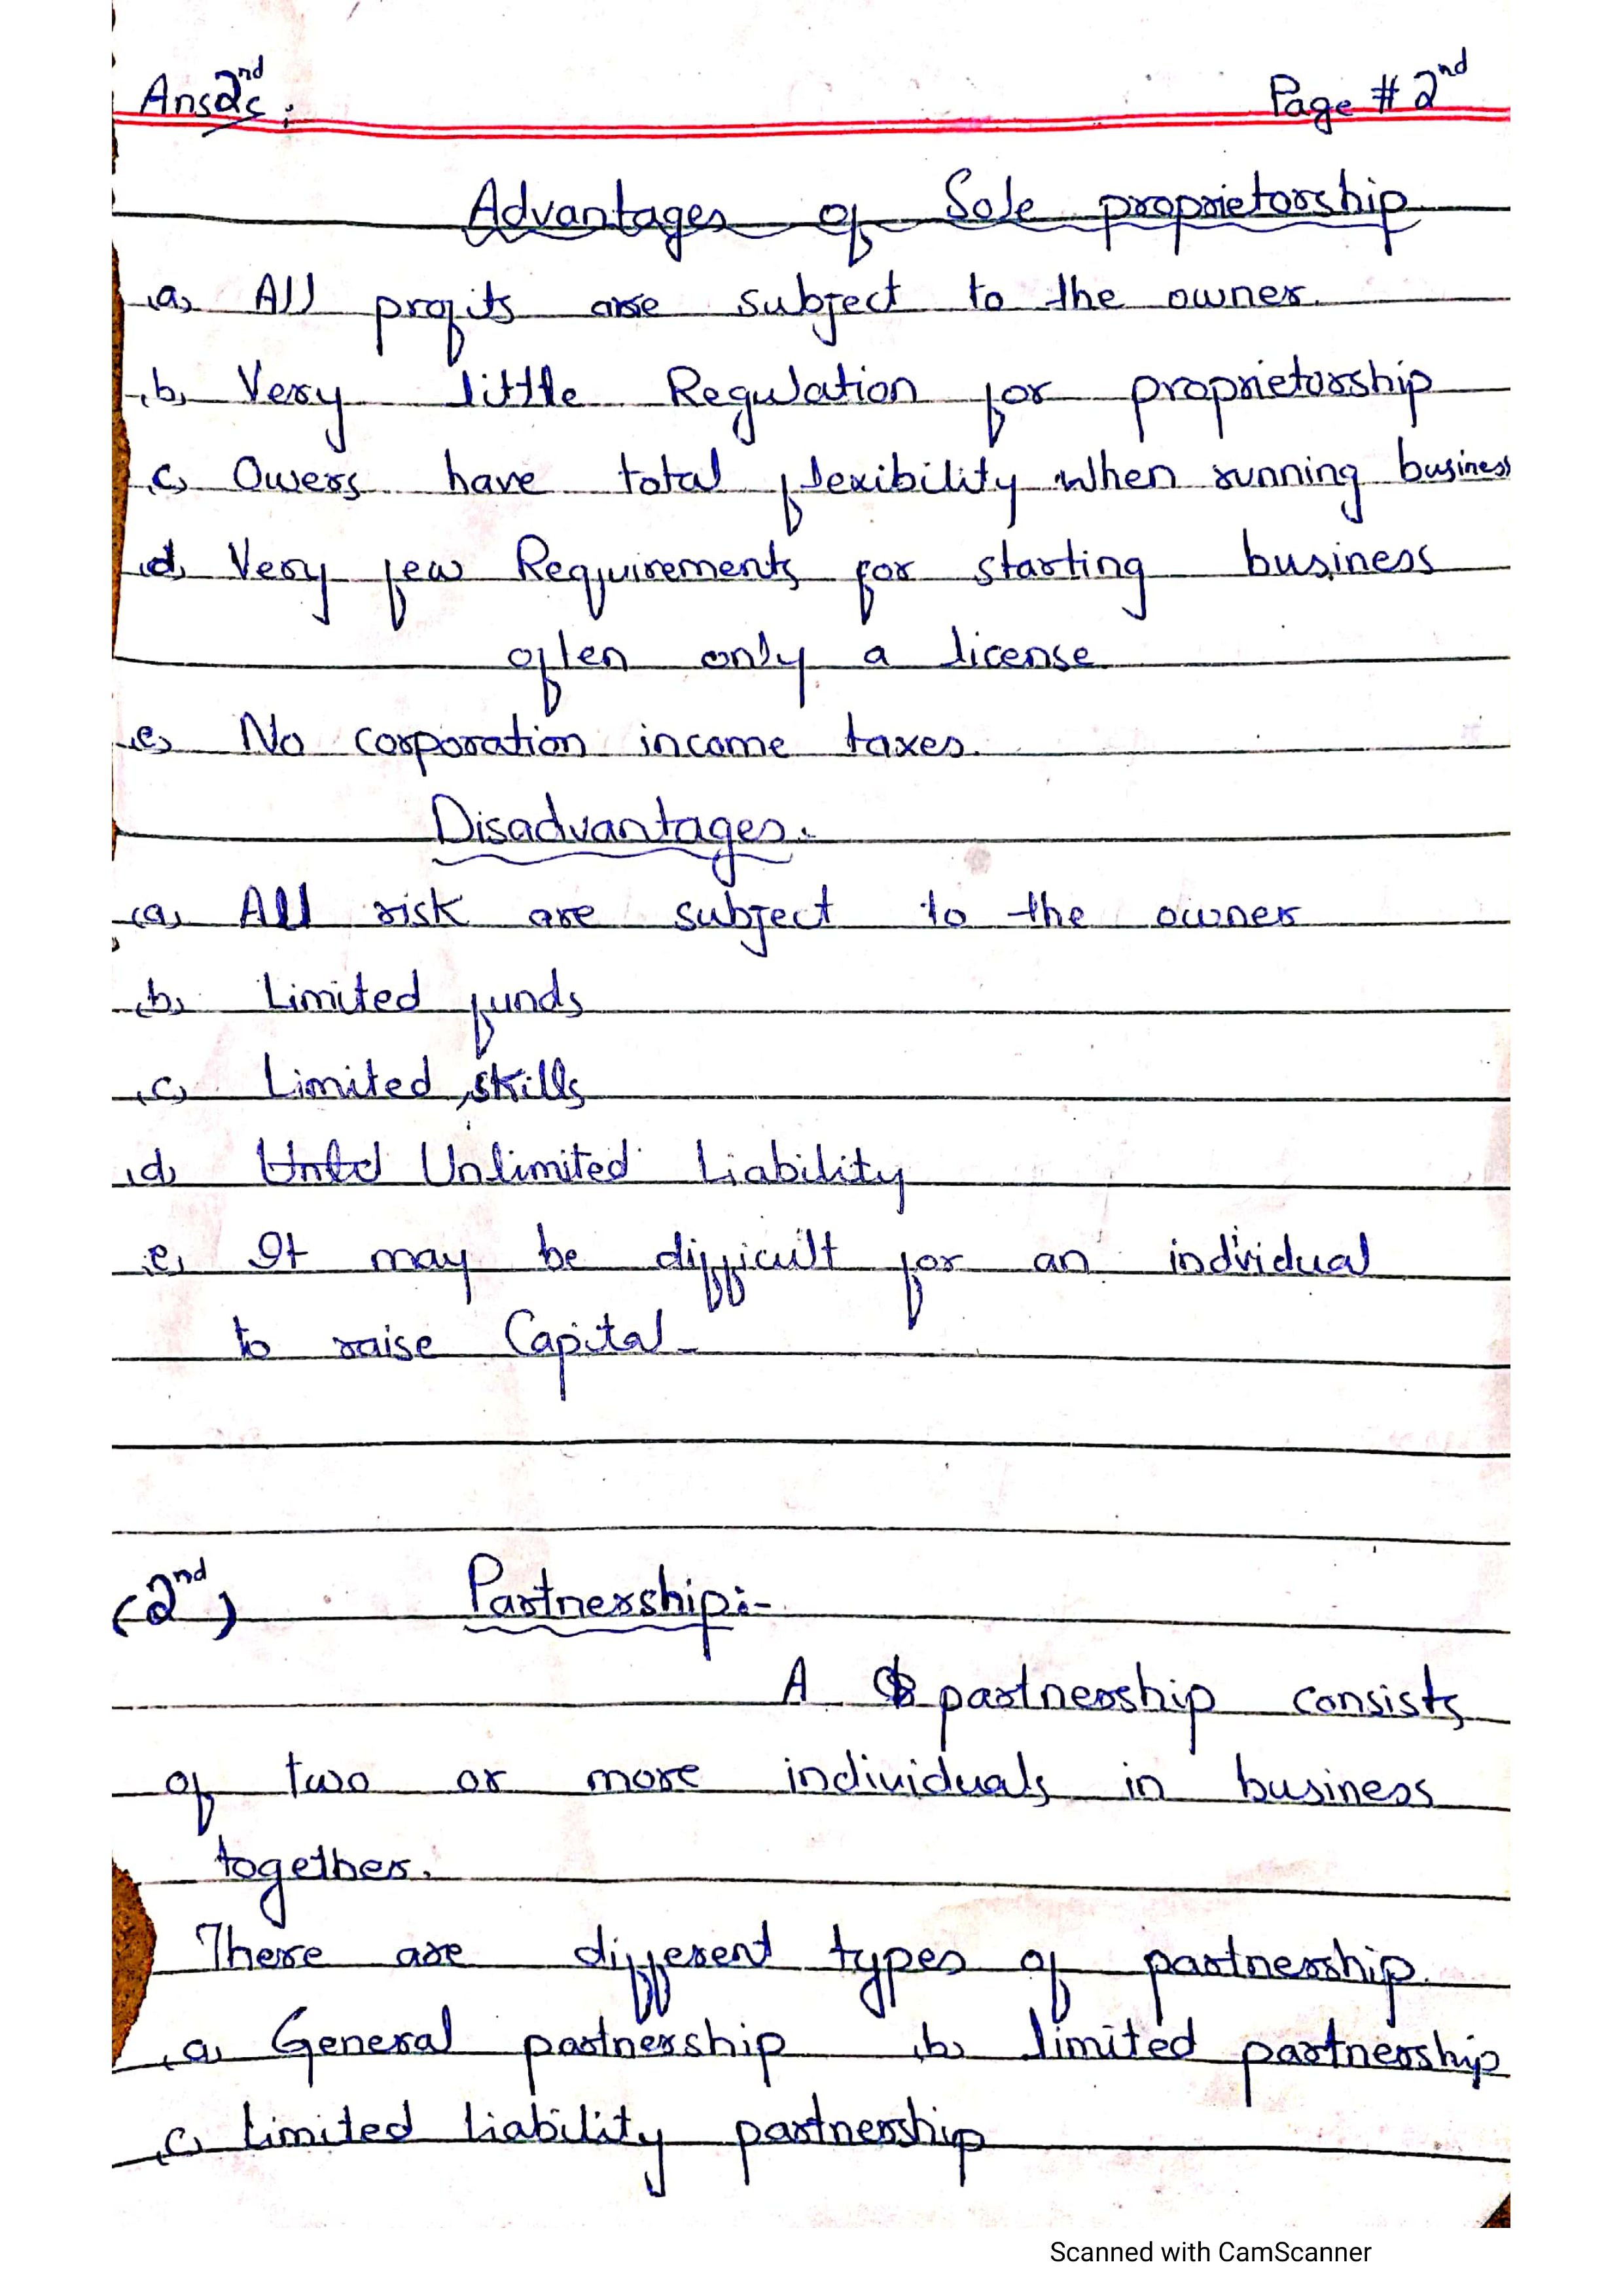 Ans 2nd :                Page # 2nd
Advantages of Sole proprietorship
(a) All profits are subject to the owner.
(b) Very little Regulation for proprietorship
(c) Owers have total flexibility when running business
(d) Very few Requirements for starting business
often only a license
(e) No corporation income taxes.
Disadvantages:-
(a) All risk are subject to the owner
(b) Limited funds
(c) Limited skills
(d) Unlimited Liability
(e) It may be difficult for an individual
to raise Capital-
(2nd) Partnership:-
A partnership consists
of two or more individuals in business
together.
There are different types of partnership.
(a) General partnership (b) limited partnership
(c) Limited liability partnership
Scanned with CamScanner